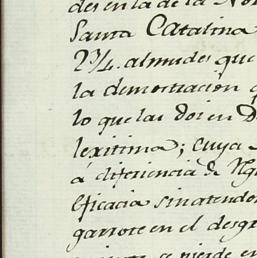 des en la de la No
Santa Catalina
2 3/4. almudes que
la demostracion
lo que las doi en D
lexitima; cuya
á diferiencia de
eficacia sin atendo
garrote en el desgr
se pierde en